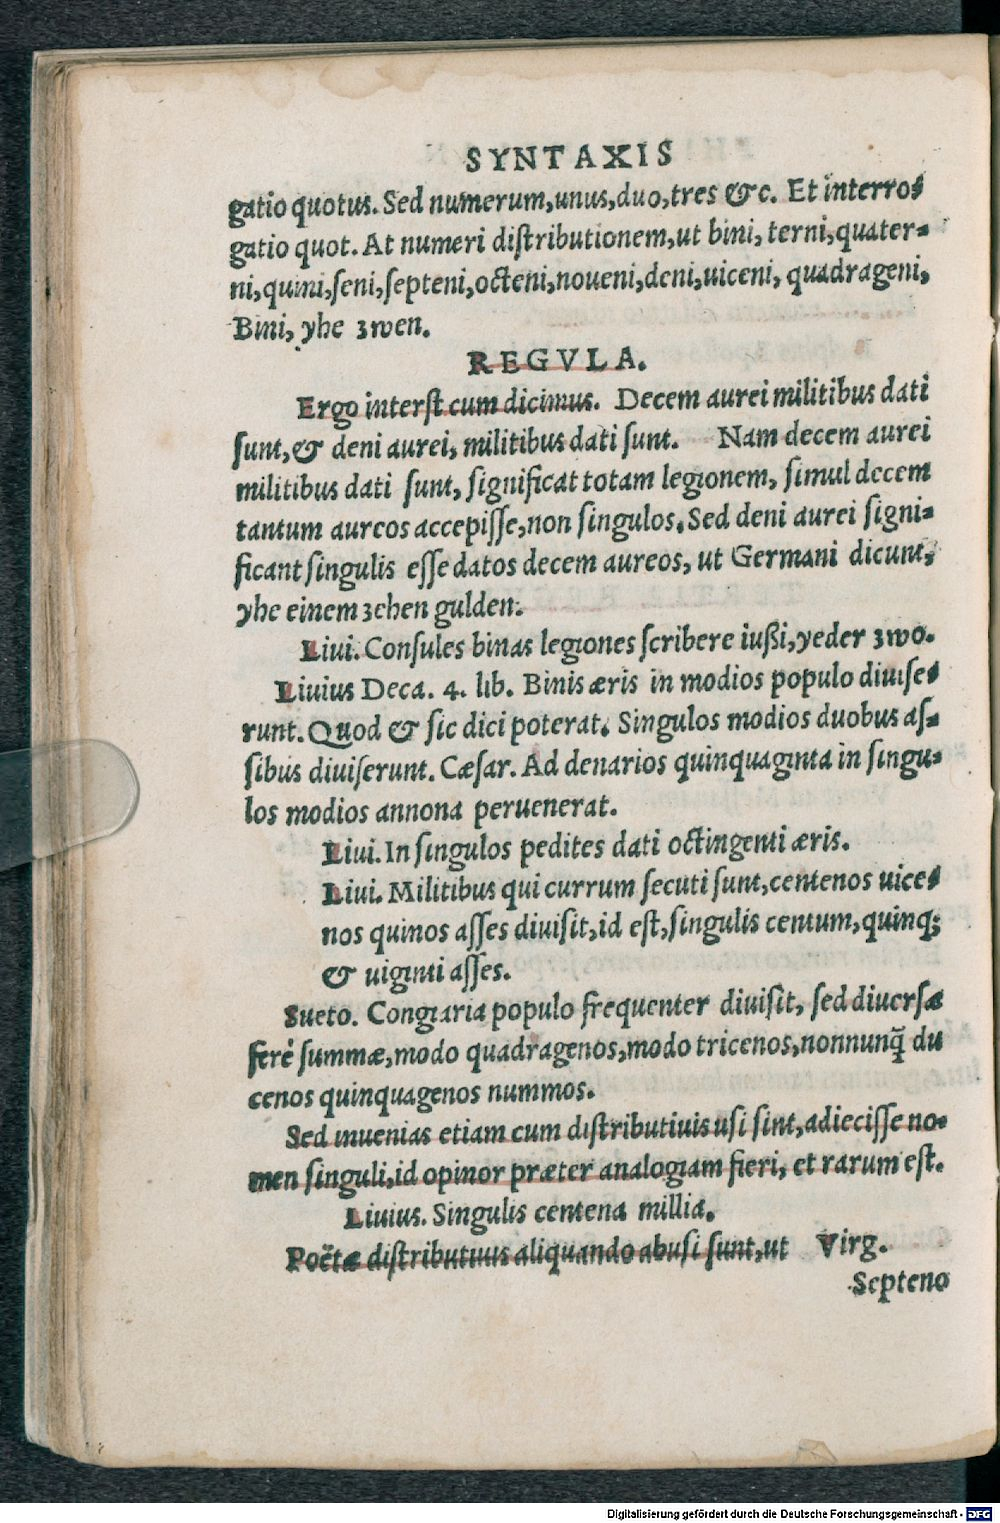 SYNTAXIS
gatio quotus. Sed numerum, unus, duo, tres &c. Et interro-
gatio quot. At numeri distributionem, ut bini, terni, quater-
ni, quini, seni, septeni, octeni, noueni, deni, uiceni, quadrageni,
Bini, yhe zwen.
REGVLA.
Ergo interst cum dicimus. Decem aurei militibus dati
sunt, & deni aurei, militibus dati sunt. Nam decem aurei
militibus dati sunt, significat totam legionem, simul decem
tantum aureos accepisse, non singulos. Sed deni aurei signi-
ficant singulis esse datos decem aureos, ut Germani dicunt,
yhe einem zehen gulden.
Liui. Consules binas legiones scribere iußi, yeder zwo.
Liuius Deca. 4. lib. Binis æris in modios populo diuise-
runt. Quod & sic dici poterat. Singulos modios duobus as-
sibus diuiserunt. Cæsar. Ad denarios quinquaginta in singu-
los modios annona peruenerat.
Liui. In singulos pedites dati octingenti æris.
Liui. Militibus qui currum secuti sunt, centenos uice-
nos quinos asses diuisit, id est, singulis centum, quinq;
& uiginti asses.
Sueto. Congiaria populo frequenter diuisit, sed diuersæ
ferè summæ, modo quadragenos, modo tricenos, nonnunq̃ du
cenos quinquagenos nummos.
Sed inuenias etiam cum distributiuis usi sint, adiecisse no-
men singuli, id opinor præter analogiam fieri, et rarum est.
Liuius. Singulis centena millia.
Poëtæ distributiuis aliquando abusi sunt, ut Virg.
Septeno
Digitalisierung gefördert durch die Deutsche Forschungsgemeinschaft - DFG